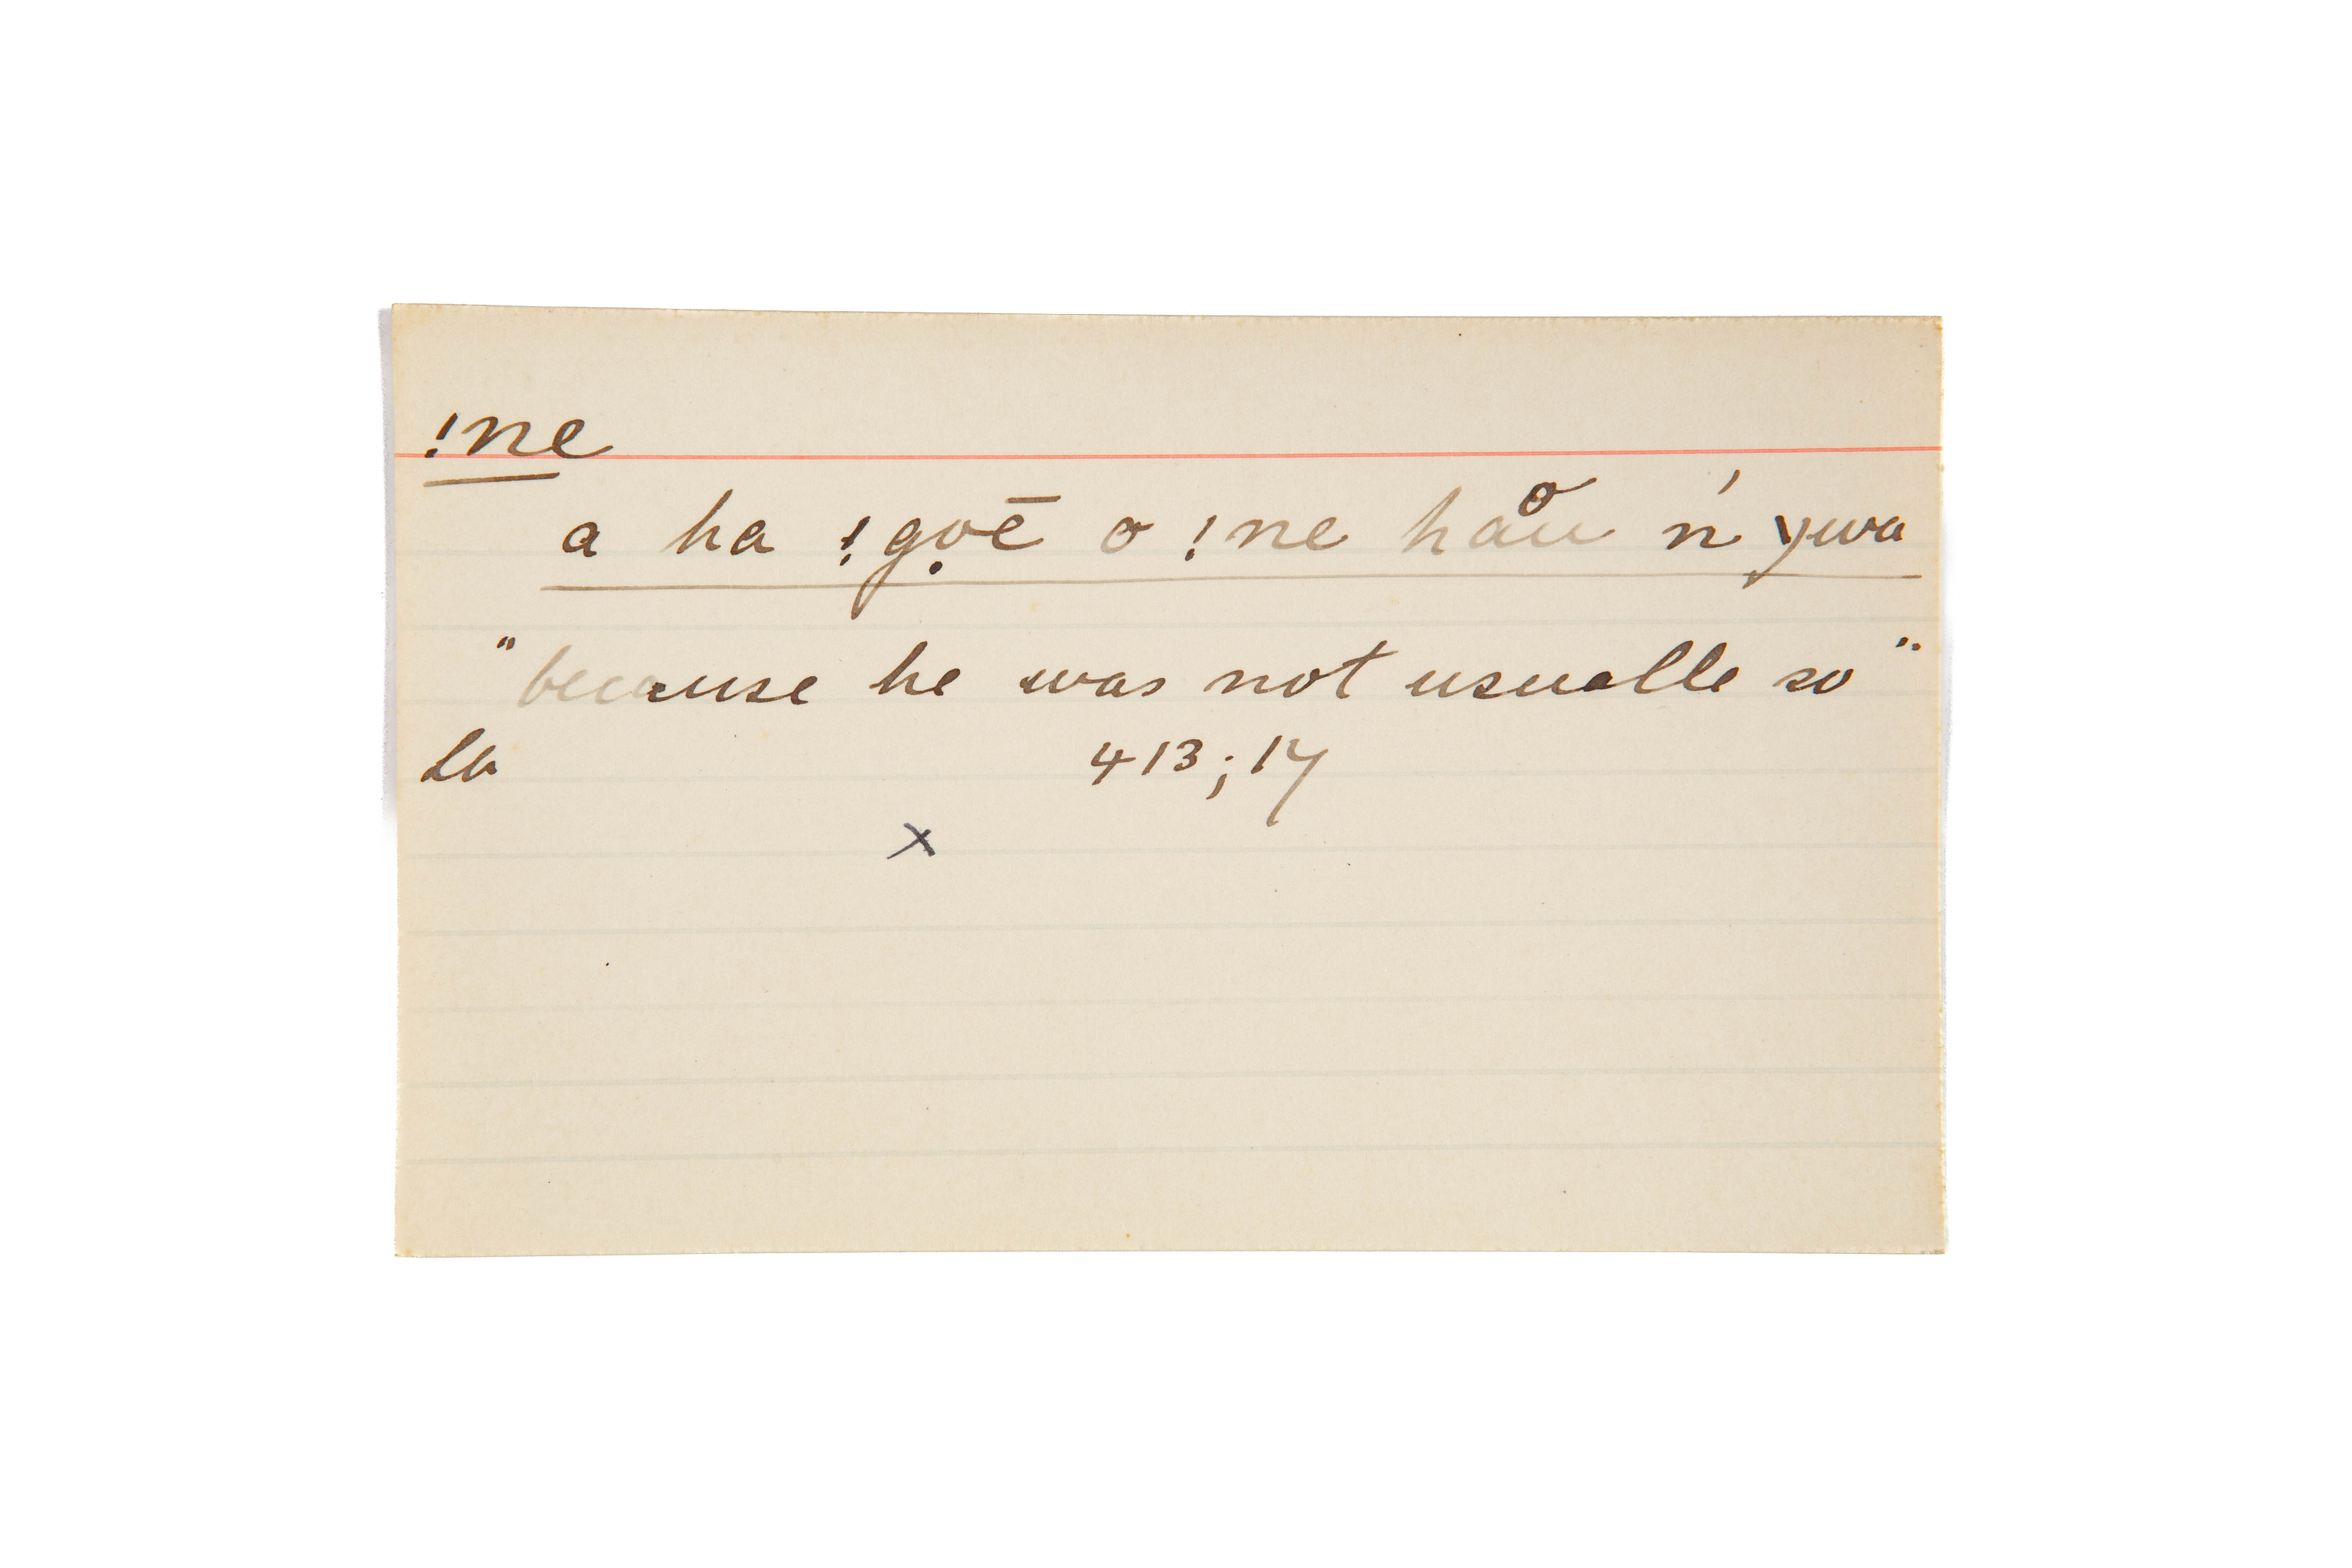 !ne
a ha !gọē o !ne håu ń ywa
"because he was not usualle so"
Lb 413; 14
x